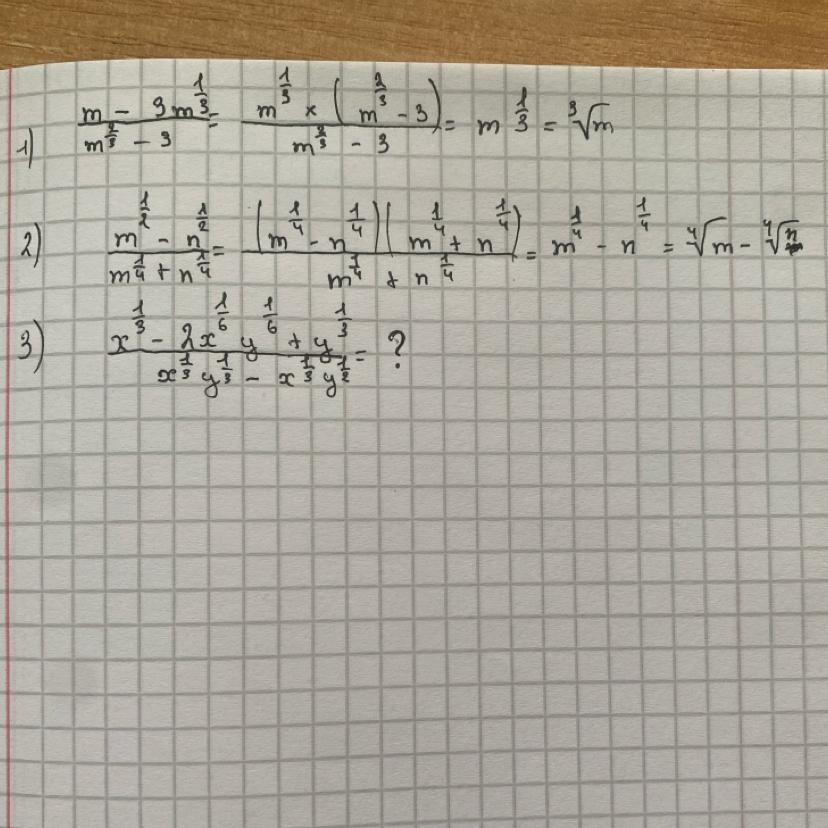 1) (m - 3m^(1/3))/(m^(2/3) - 3) = (m^(1/3) × (m^(2/3) - 3))/(m^(2/3) - 3) = m^(1/3) = ∛m
2) (m^(1/2) - n^(1/2))/(m^(1/4) + n^(1/4)) = ((m^(1/4) - n^(1/4))(m^(1/4) + n^(1/4)))/(m^(1/4) + n^(1/4)) = m^(1/4) - n^(1/4) = ∜m - ∜n
3) (x^(1/3) - 2x^(1/6) y^(1/6) + y^(1/3))/(x^(1/3) y^(1/3) - x^(1/3) y^(1/2)) = ?